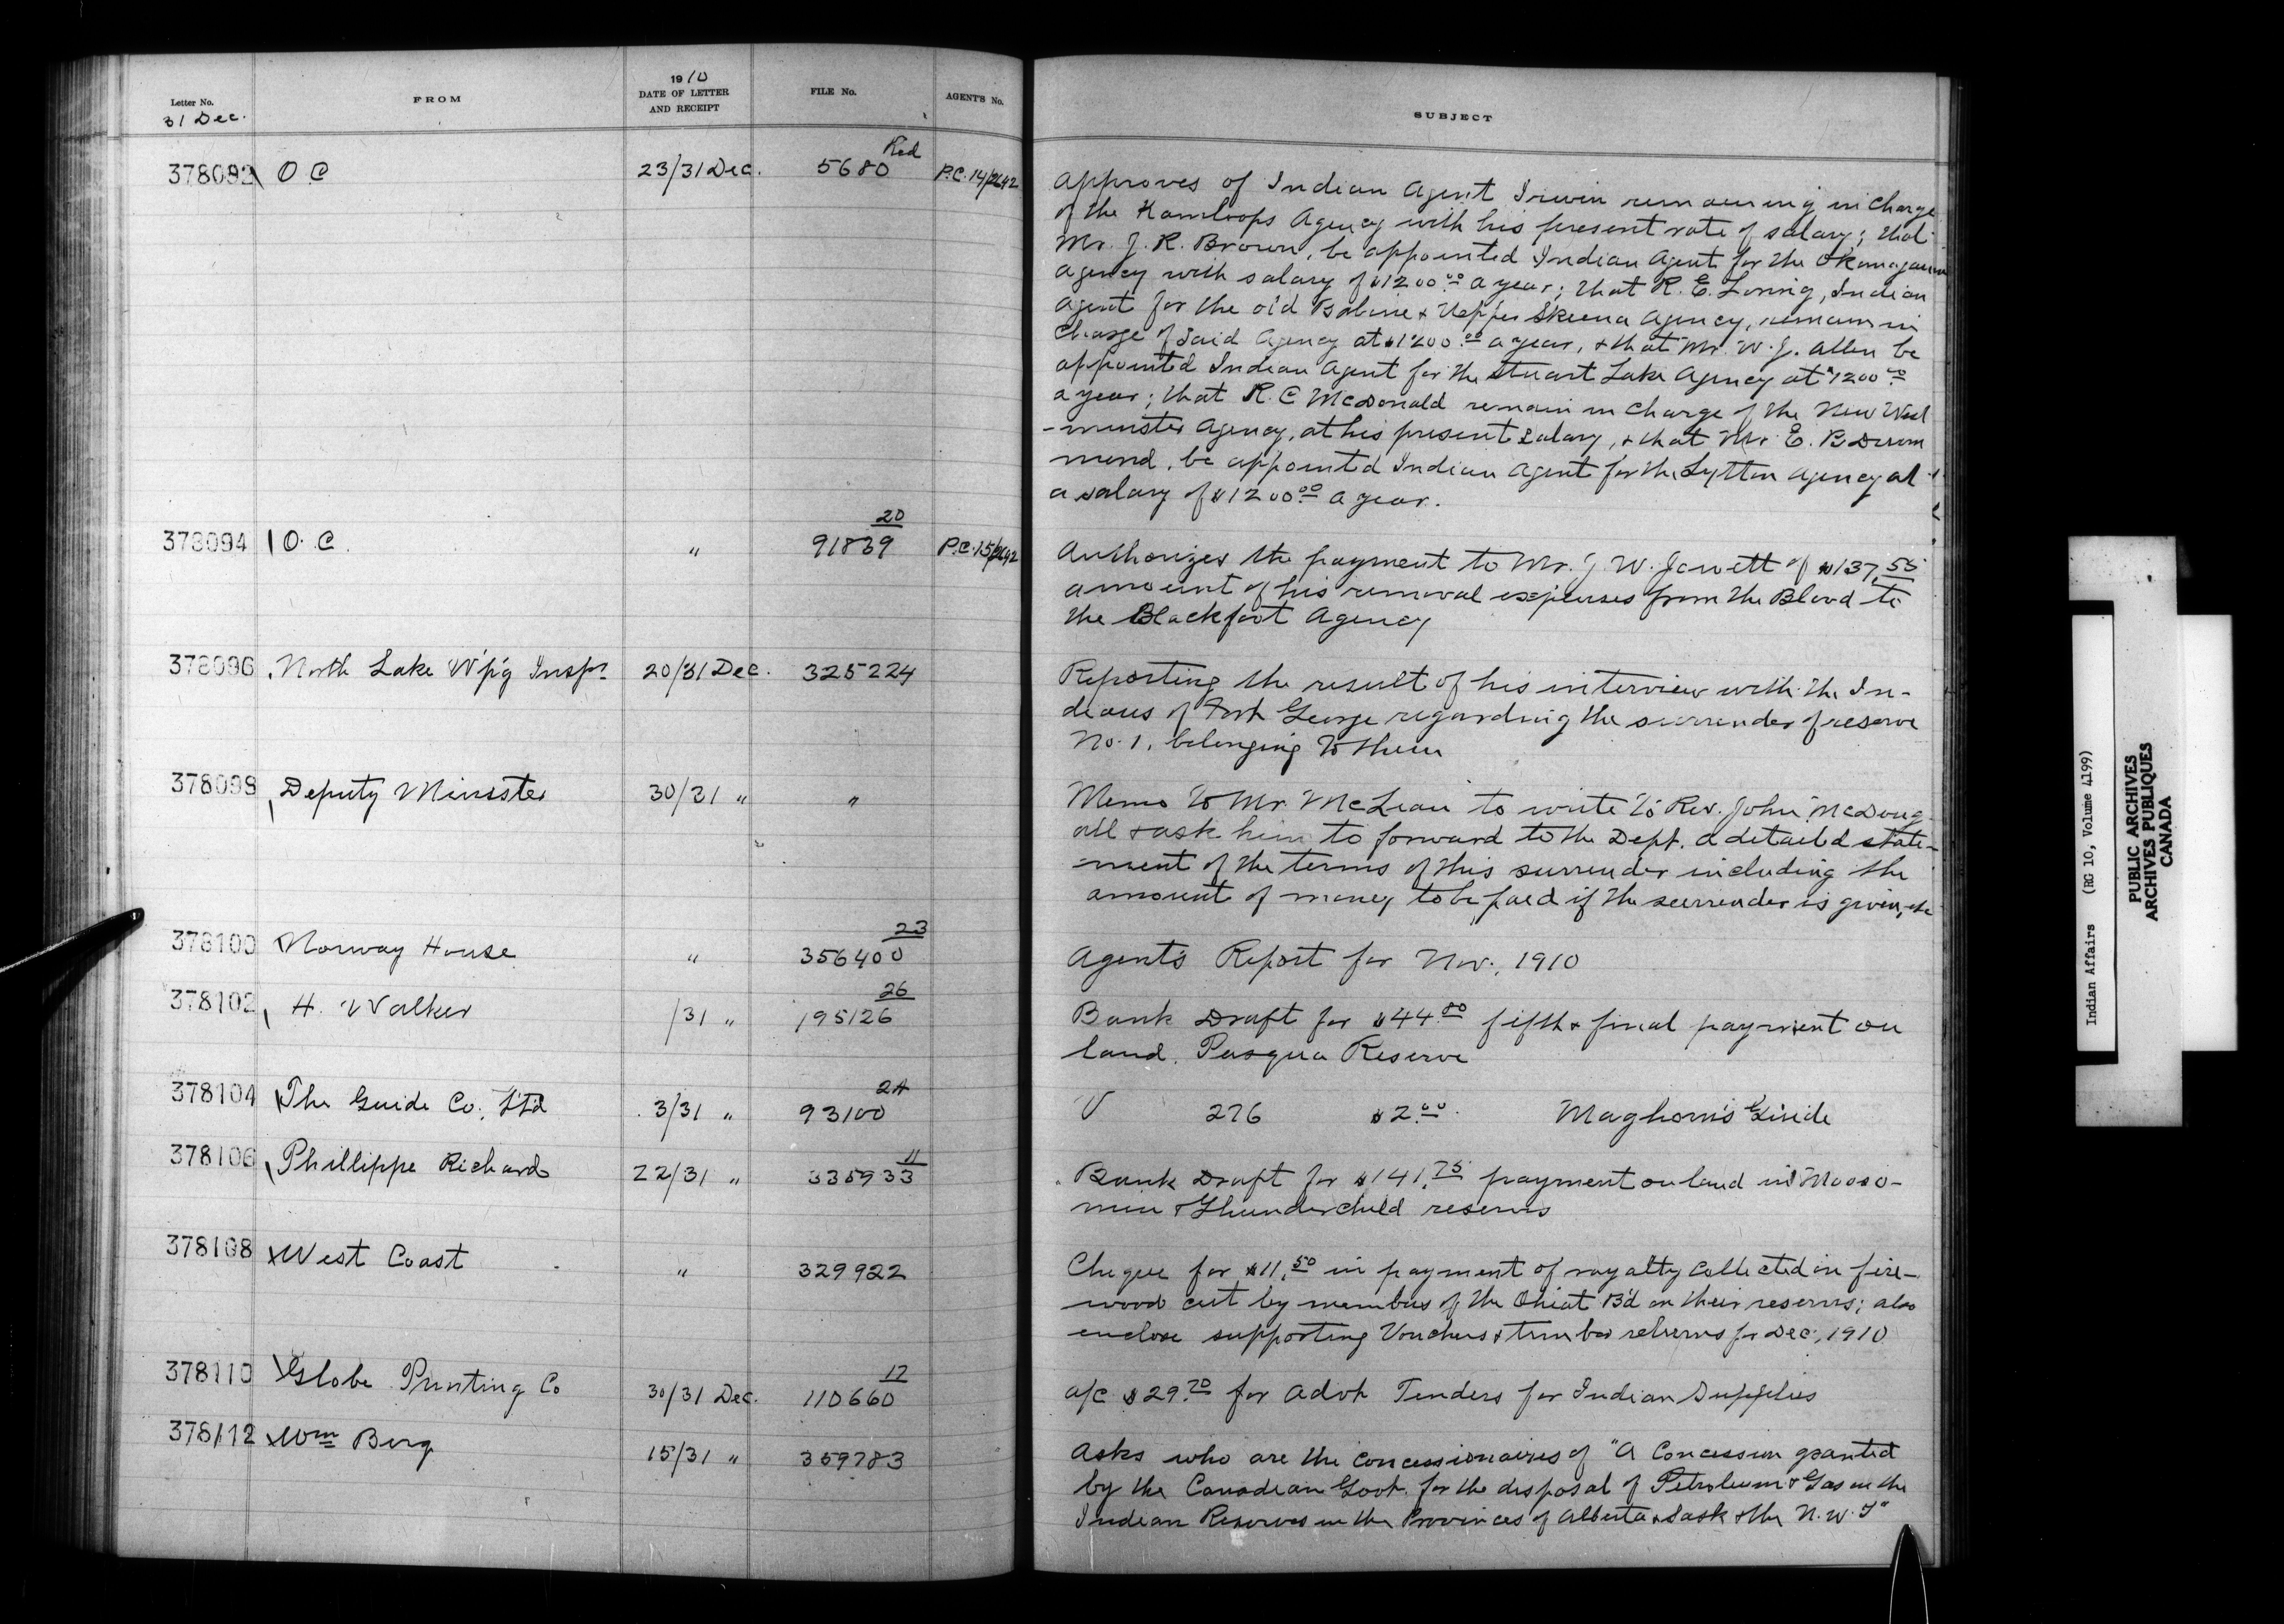 Letter No.
31 Dec.
FROM
1910
DATE OF LETTER
AND RECEIPT
FILE No.
AGENT'S No.
SUBJECT
378092 O C 23/31 Dec. 5680 Red P.C. 14/2642
Approves of Indian Agent Irwin remaining in charge
of the Kamloops Agency with his present rate of salary; that
Mr. J. R. Brown, be appointed Indian Agent for the Okanagan
agency with salary of $1200.00 a year; that R. E. Loring, Indian
Agent for the old Babine & Upper Skeena Agency, remain in
charge of said Agency at $1200.00 a year, & that Mr. W. J. Allen be
appointed Indian Agent for the Stuart Lake Agency at $1200.00
a year; that R. C McDonald remain in charge of the New West
-minster Agency, at his present salary, & that Mr. E. B Drum
mond, be appointed Indian Agent for the Lytton Agency at
a salary of $1200.00 a year.
378094 O. C. " 20
91839 P.C. 15/2642
Authorizes the payment to Mr. J. W. Jowett of $137.55
amount of his removal expenses from the Blood to
the Blackfoot Agency
378096 North Lake W'p'g Inspr 20/31 Dec. 325224
Reporting the result of his interview with the In-
dians of Fort George regarding the surrender of reserve
No. 1, belonging to them
378098 Deputy Minister 30/31 " "
Memo to Mr. McLean to write to Rev. John McDoug-
all & ask him to forward to the Dept. a detailed state-
ment of the terms of this surrender including the
amount of money to be paid if the surrender is given, etc
378100 Norway House " 23
356400
Agent's Report for Nov., 1910
378102 H. Walker /31 " 26
195126
Bank Draft for $44.80 fifth & final payment on
land. Pasqua Reserve
378104 The Guide Co., Ltd 3/31 " 24
93100
V 276 $2.00 Maghorn's Guide
378106 Phillippe Richard 22/31 " 11
335933
Bank Draft for $141.75 payment on land in Mooso-
min & Thunderchild reserves
378108 West Coast " 329922
Cheque for $11.50 in payment of royalty collected on fire-
wood cut by members of the Ohiat B'd on their reserves; also
enclose supporting Vouchers & timber returns for Dec., 1910
378110 Globe Printing Co 30/31 Dec. 17
110660
a/c $29.70 for Advt Tenders for Indian Supplies
378112 Wm Berg 15/31 " 359783
Asks who are the concessionaires of "A Concession granted
by the Canadian Govt. for the disposal of Petroleum & Gas in the
Indian Reserves in the Provinces of Alberta & Sask & the N. W. T"
Indian Affairs (RG 10, Volume 4199)
PUBLIC ARCHIVES
ARCHIVES PUBLIQUES
CANADA